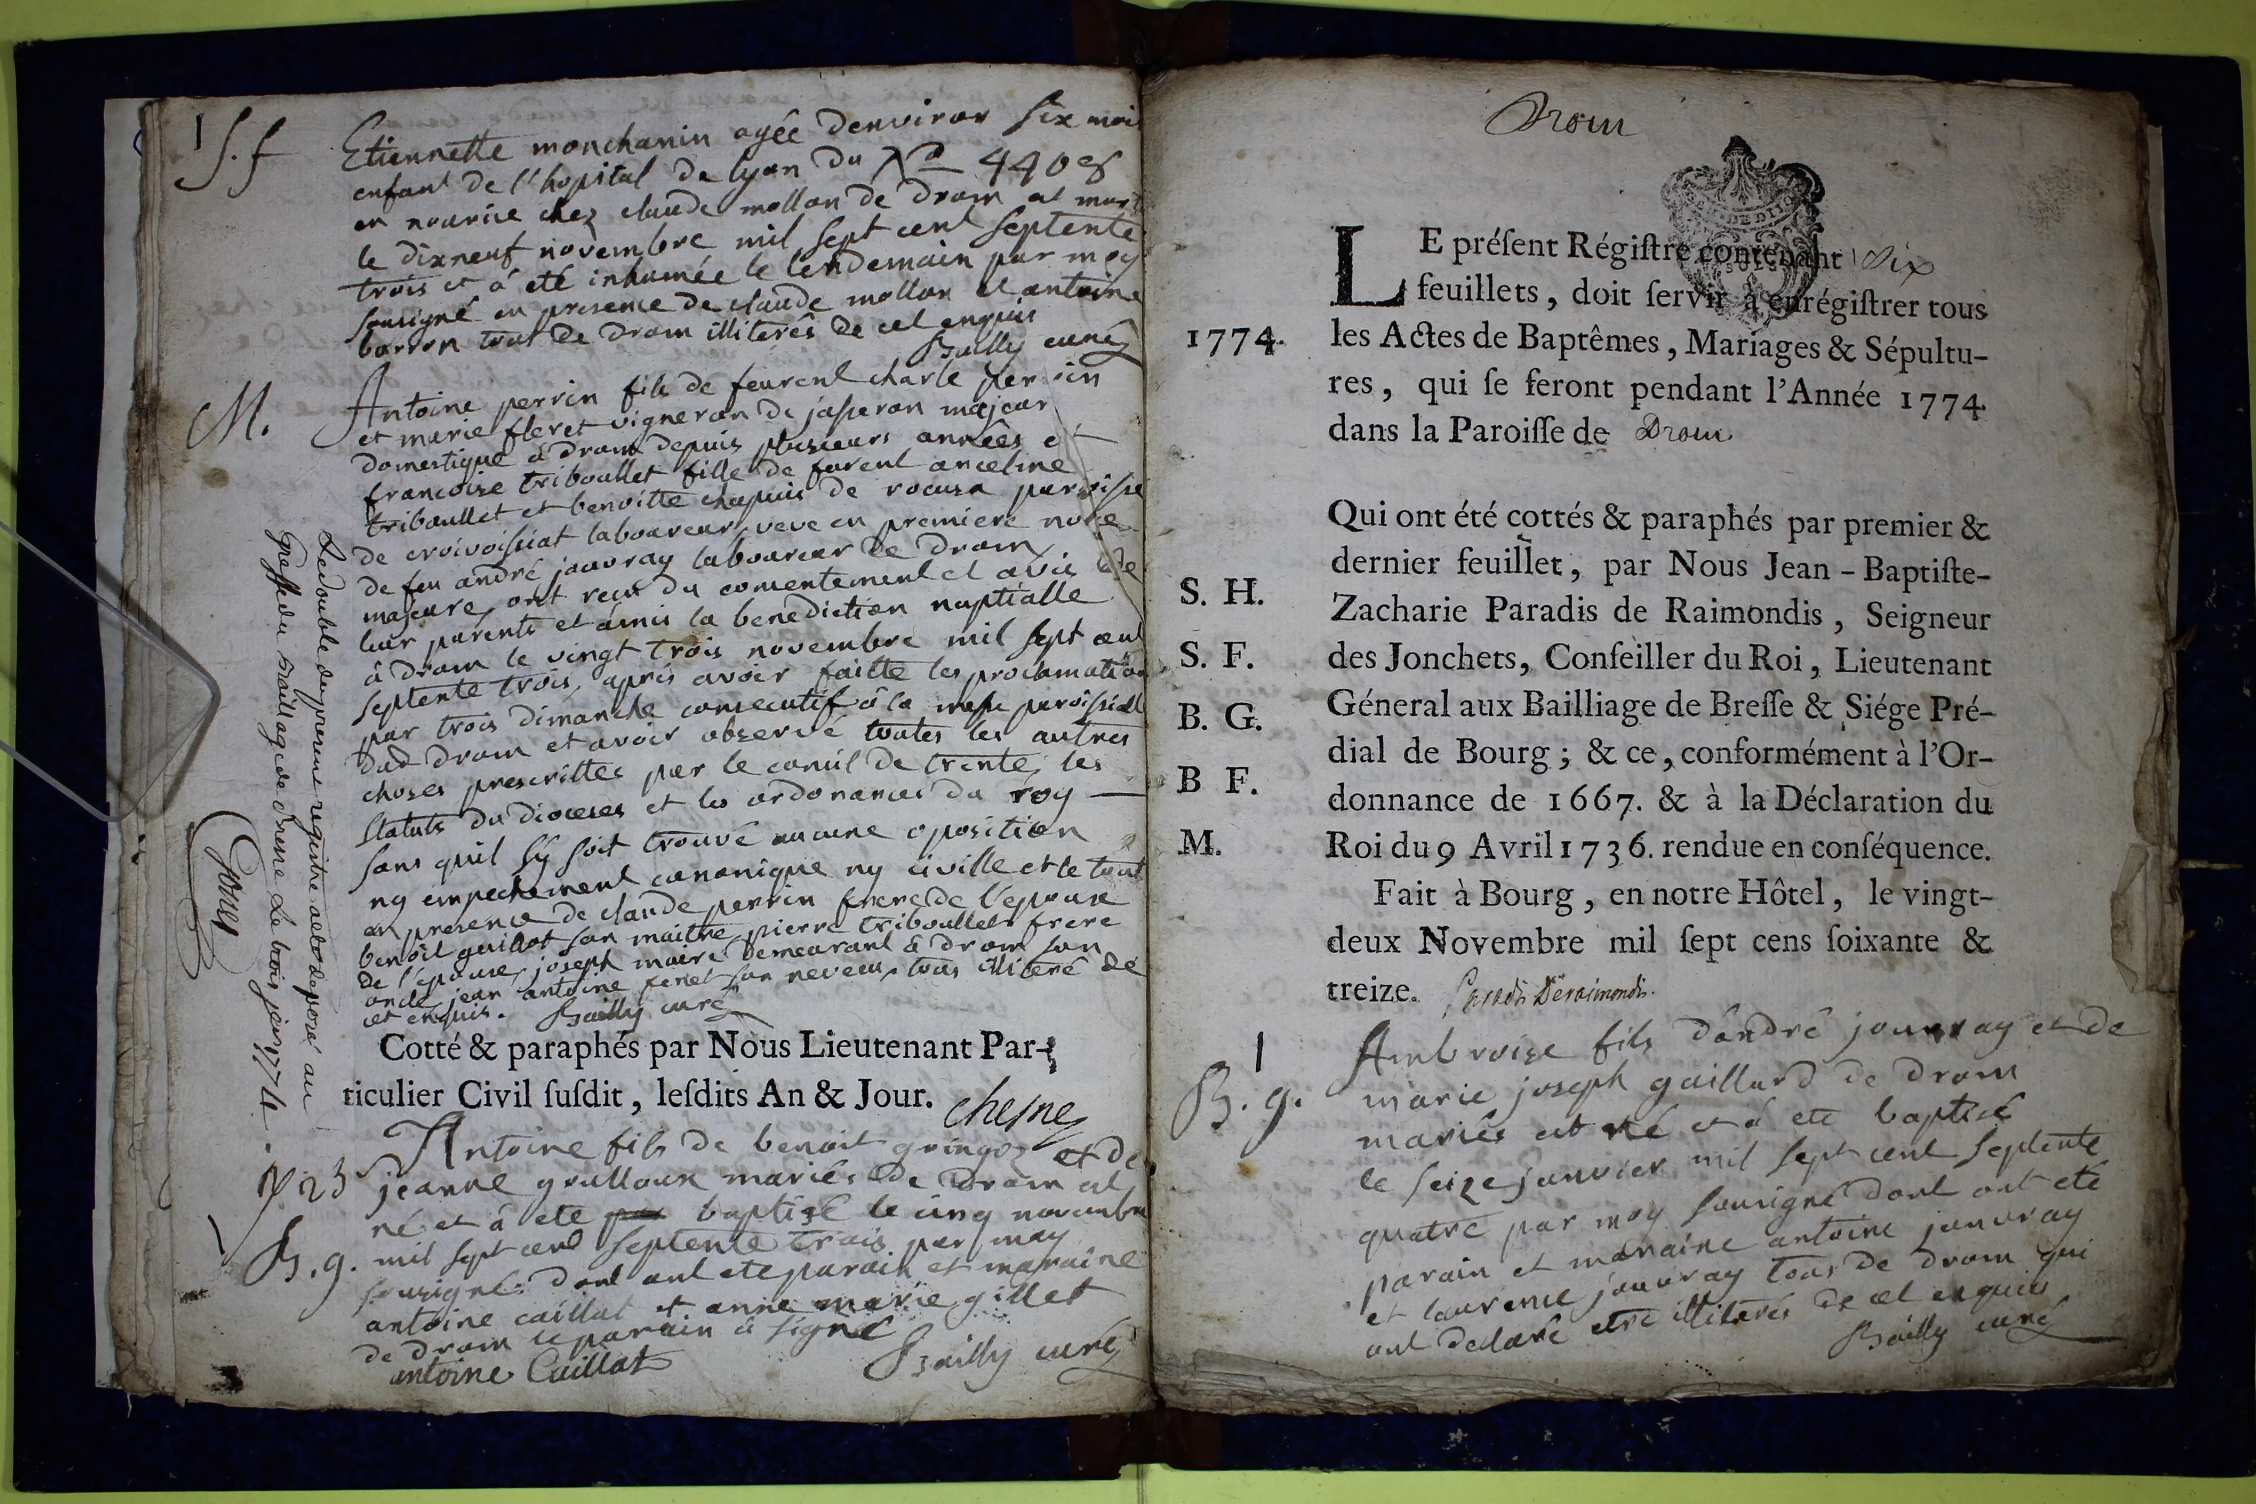 1 S. f
Etiennette monchanin agée denviron six mois
enfant de l'hopital de lyon du No 4408
en nourice chez claude mollon de drom est mort
le dixneuf novembre mil sept cent septente
trois et á eté inhumée le lendemain par moy
sousigné en presence de claude mollon et antoine
borron tous de drom illiterés de cel enquis
Bailly curé
M.
Antoine perrin fils de charle perrin
et marie fleret vigneron de jasseron majeur
domestique à drom depuis plusieurs années et
francoise triboullet fille de anceline
triboullet et benoitte chapuis de paroisse
de laboureur veve en premiere noce
de feu andré jouvray laboureur de drom
majeure, ont recu du consentement et avis de
leur parents et ámis la benediction nuptialle
â drom le vingt trois novembre mil sept cent
septente trois, aprés avoir faitte les proclamation
par trois dimanche consecutif â la messe paroissiall
dud drom et avoir observé toutes les autres
choses prescrittes par le concil de trente, les
statuts du dioceses et les ordonances du roy
sans quil sy soit trouvé aucune oposition
ny empechement canonique ny civille et le tout
en presence de claude perrin frere de l'epoux
benoit guillot son maitre, pierre triboullet frere
de l'epouse, joseph maire demeurant â drom son
oncle, jean antoine feret son neveeu, tous illiteré de
cet enquis. Bailly curé
Le double du present registre acté deposé au
greffe du Bailliage de Bresse Le trois janv 1774.
Cotté & paraphés par Nous Lieutenant Par-
ticulier Civil ſuſdit, leſdits An & Jour.
Chesne
23
1
B. g.
Antoine fils de benoit gringoz et de
jeanne grulloux mariés de Drom est
né et á ete baptisé le cinq novembre
mil sept cent septente trois par moy
sousigné: dont ont ete parain et maraine
antoine caillat et anne marie gillet
de drom le parain â signé
antoine Caillat Bailly curé
Drom
LE préſent Régiſtre contenant six
feuillets, doit ſervir à enrégiſtrer tous
1774. les Actes de Baptêmes, Mariages & Sépultu-
res, qui ſe feront pendant l'Année 1774.
dans la Paroiſſe de Drom
Qui ont été cottés & paraphés par premier &
dernier feuillet, par Nous Jean-Baptiſte-
S. H. Zacharie Paradis de Raimondis, Seigneur
S. F. des Jonchets, Conſeiller du Roi, Lieutenant
B. G. Géneral aux Bailliage de Breſſe & Siége Pré-
dial de Bourg; & ce, conformément à l'Or-
B F. donnance de 1667. & à la Déclaration du
M. Roi du 9 Avril 1736. rendue en conſéquence.
Fait à Bourg, en notre Hôtel, le vingt-
deux Novembre mil ſept cens ſoixante &
treize. Paradis Deraimondis.
1
B. g.
Ambroise fils dándré jouvray et de
marie joseph gaillard de drom
mariés est né et á ete baptisé
le seize janvier mil sept cent septente
quatre par moy sousigné dont ont eté
parain et maraine antoine jouvray
et laurence jouvray tous de drom qui
ont declaré etre illiterés de cel enquis
Bailly curé